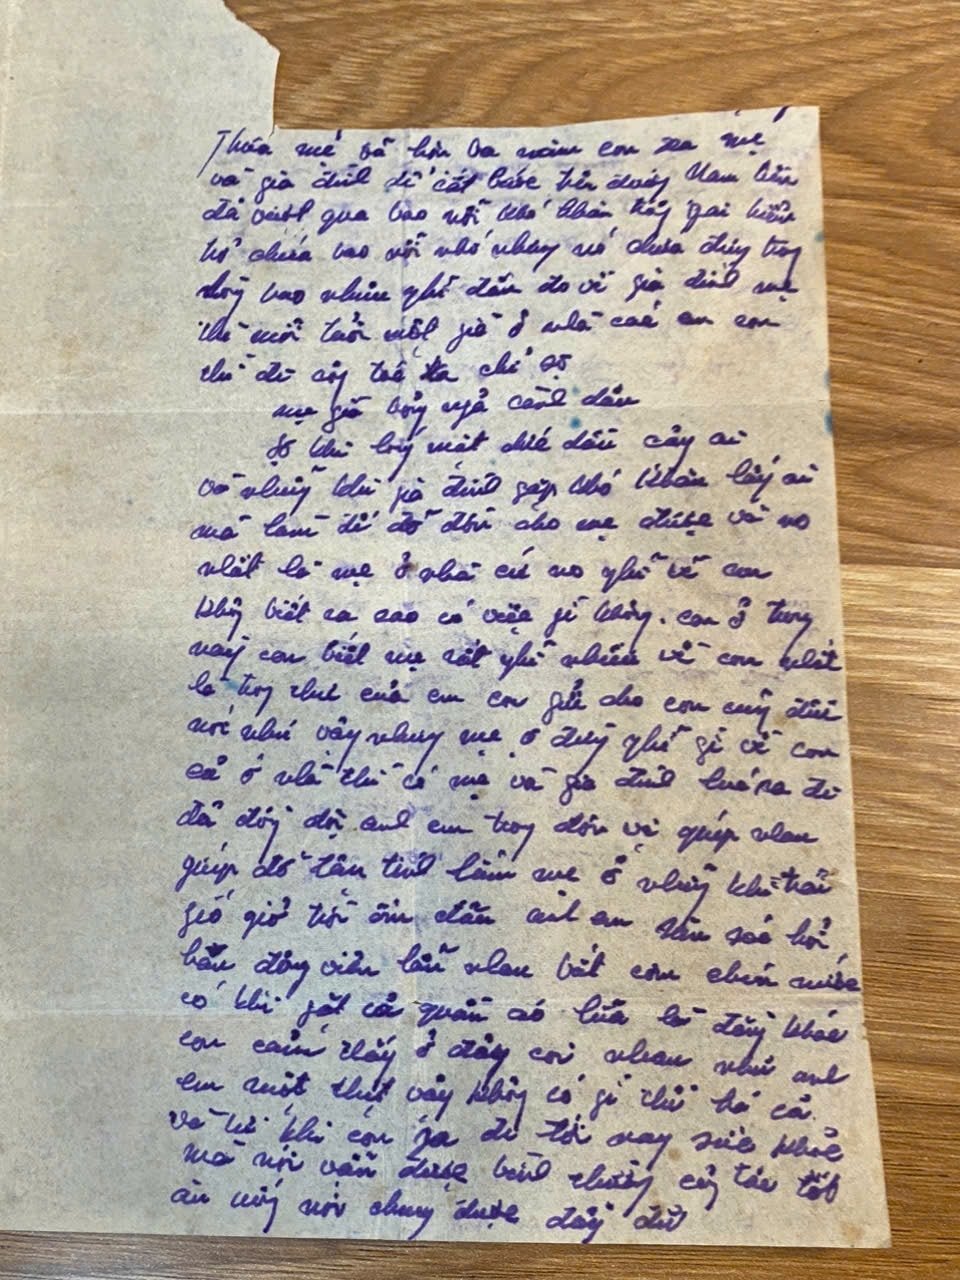 Thưa mẹ và hơn ba năm con xa mẹ
và gia đình để cất bước trên đường Nam tiến
đã vượt qua bao nỗi khó khăn
bao nỗi nhớ nhung
bao nhiêu nghĩ đắn đo về gia đình mẹ
thì mỗi tuổi một già ở nhà các em con
thì đi
mẹ già bóng ngả cành dâu
khi bóng mát dưới dâu cậy ai
và những khi gia đình gặp khó khăn lấy ai
mà làm để đỡ đần cho mẹ được và no
nhất là mẹ ở nhà cứ no nghĩ về con
không biết ra sao có việc gì không. con ở trong
này con biết mẹ rất nghĩ nhiều về con nhất
là trong thư của em con gửi cho con cũng đều
nói như vậy nhưng mẹ ơ đừng nghĩ gì về con
cả ở nhà thì có mẹ và gia đình bước ra đi
đã đồng đội anh em trong đơn vị giúp nhau
giúp đỡ tận tình lắm mẹ ơ những khi trái
gió giở trời ốm đau anh em săn soc hỏi
han động viên lẫn nhau bát cơm chén nước
có khi giặt cả quần áo
con cảm thấy ở đây coi nhau như anh
em một thịt vậy không có gì thù há cả.
và từ khi con ra đi tới nay sức khoẻ
mà nói vẫn được bình thường công tác tốt
ăn uống nói chung được đầy đủ